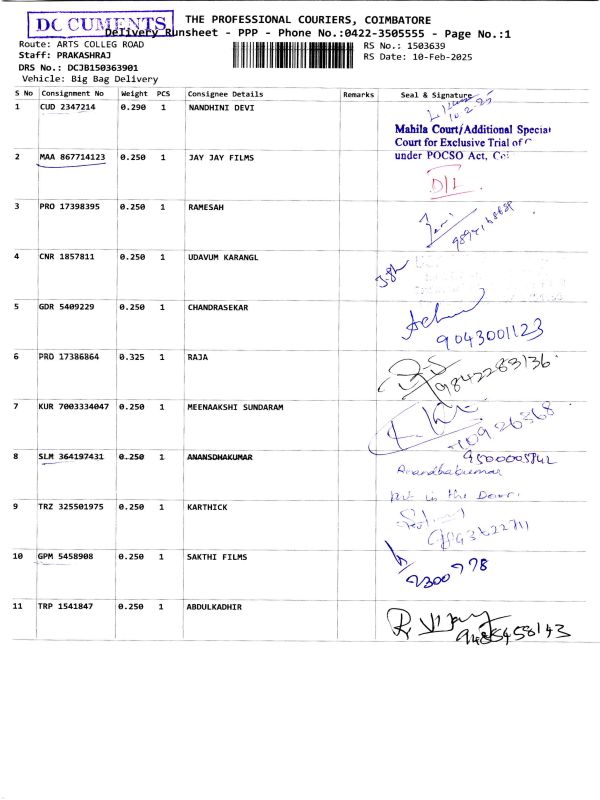 DOCUMENTS
THE PROFESSIONAL COURIERS, COIMBATORE
Delivery Runsheet - PPP - Phone No.:0422-3505555 - Page No.:1
Route: ARTS COLLEG ROAD
RS No.: 1503639
Staff: PRAKASHRAJ
RS Date: 10-Feb-2025
DRS No.: DCJB150363901
Vehicle: Big Bag Delivery
S No Consignment No Weight PCS Consignee Details Remarks Seal & Signature
1 CUD 2347214 0.290 1 NANDHINI DEVI
10.2.25
Mahila Court/Additional Special
Court for Exclusive Trial of
under POCSO Act,
2 MAA 867714123 0.250 1 JAY JAY FILMS
D/L
3 PRO 17398395 0.250 1 RAMESAH
4 CNR 1857811 0.250 1 UDAVUM KARANGL
5 GDR 5409229 0.250 1 CHANDRASEKAR
9043001123
6 PRO 17386864 0.325 1 RAJA
9842283136
7 KUR 7003334047 0.250 1 MEENAAKSHI SUNDARAM
8 SLM 364197431 0.250 1 ANANSDHAKUMAR
Anandhakumar
Put in the Door.
9 TRZ 325501975 0.250 1 KARTHICK
10 GPM 5458908 0.250 1 SAKTHI FILMS
11 TRP 1541847 0.250 1 ABDULKADHIR
R. Vijay